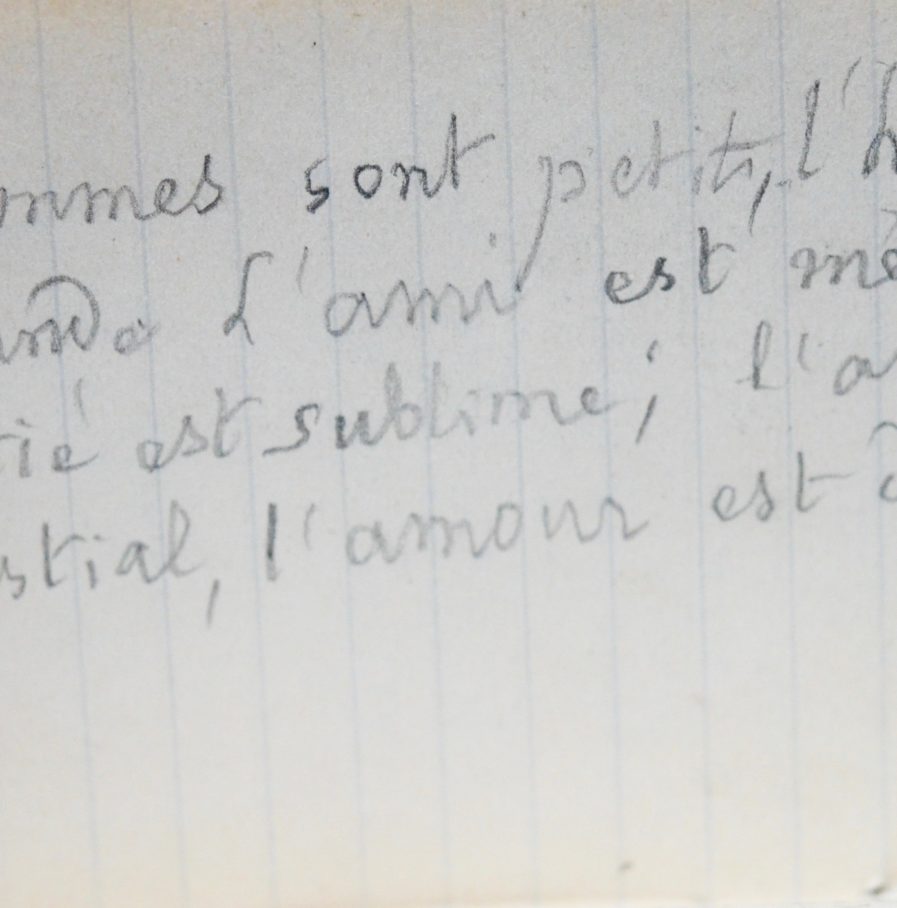 ommes sont petits, l'h
ande L'ami est mé
tié est sublime; l'a
stial, l'amour est d